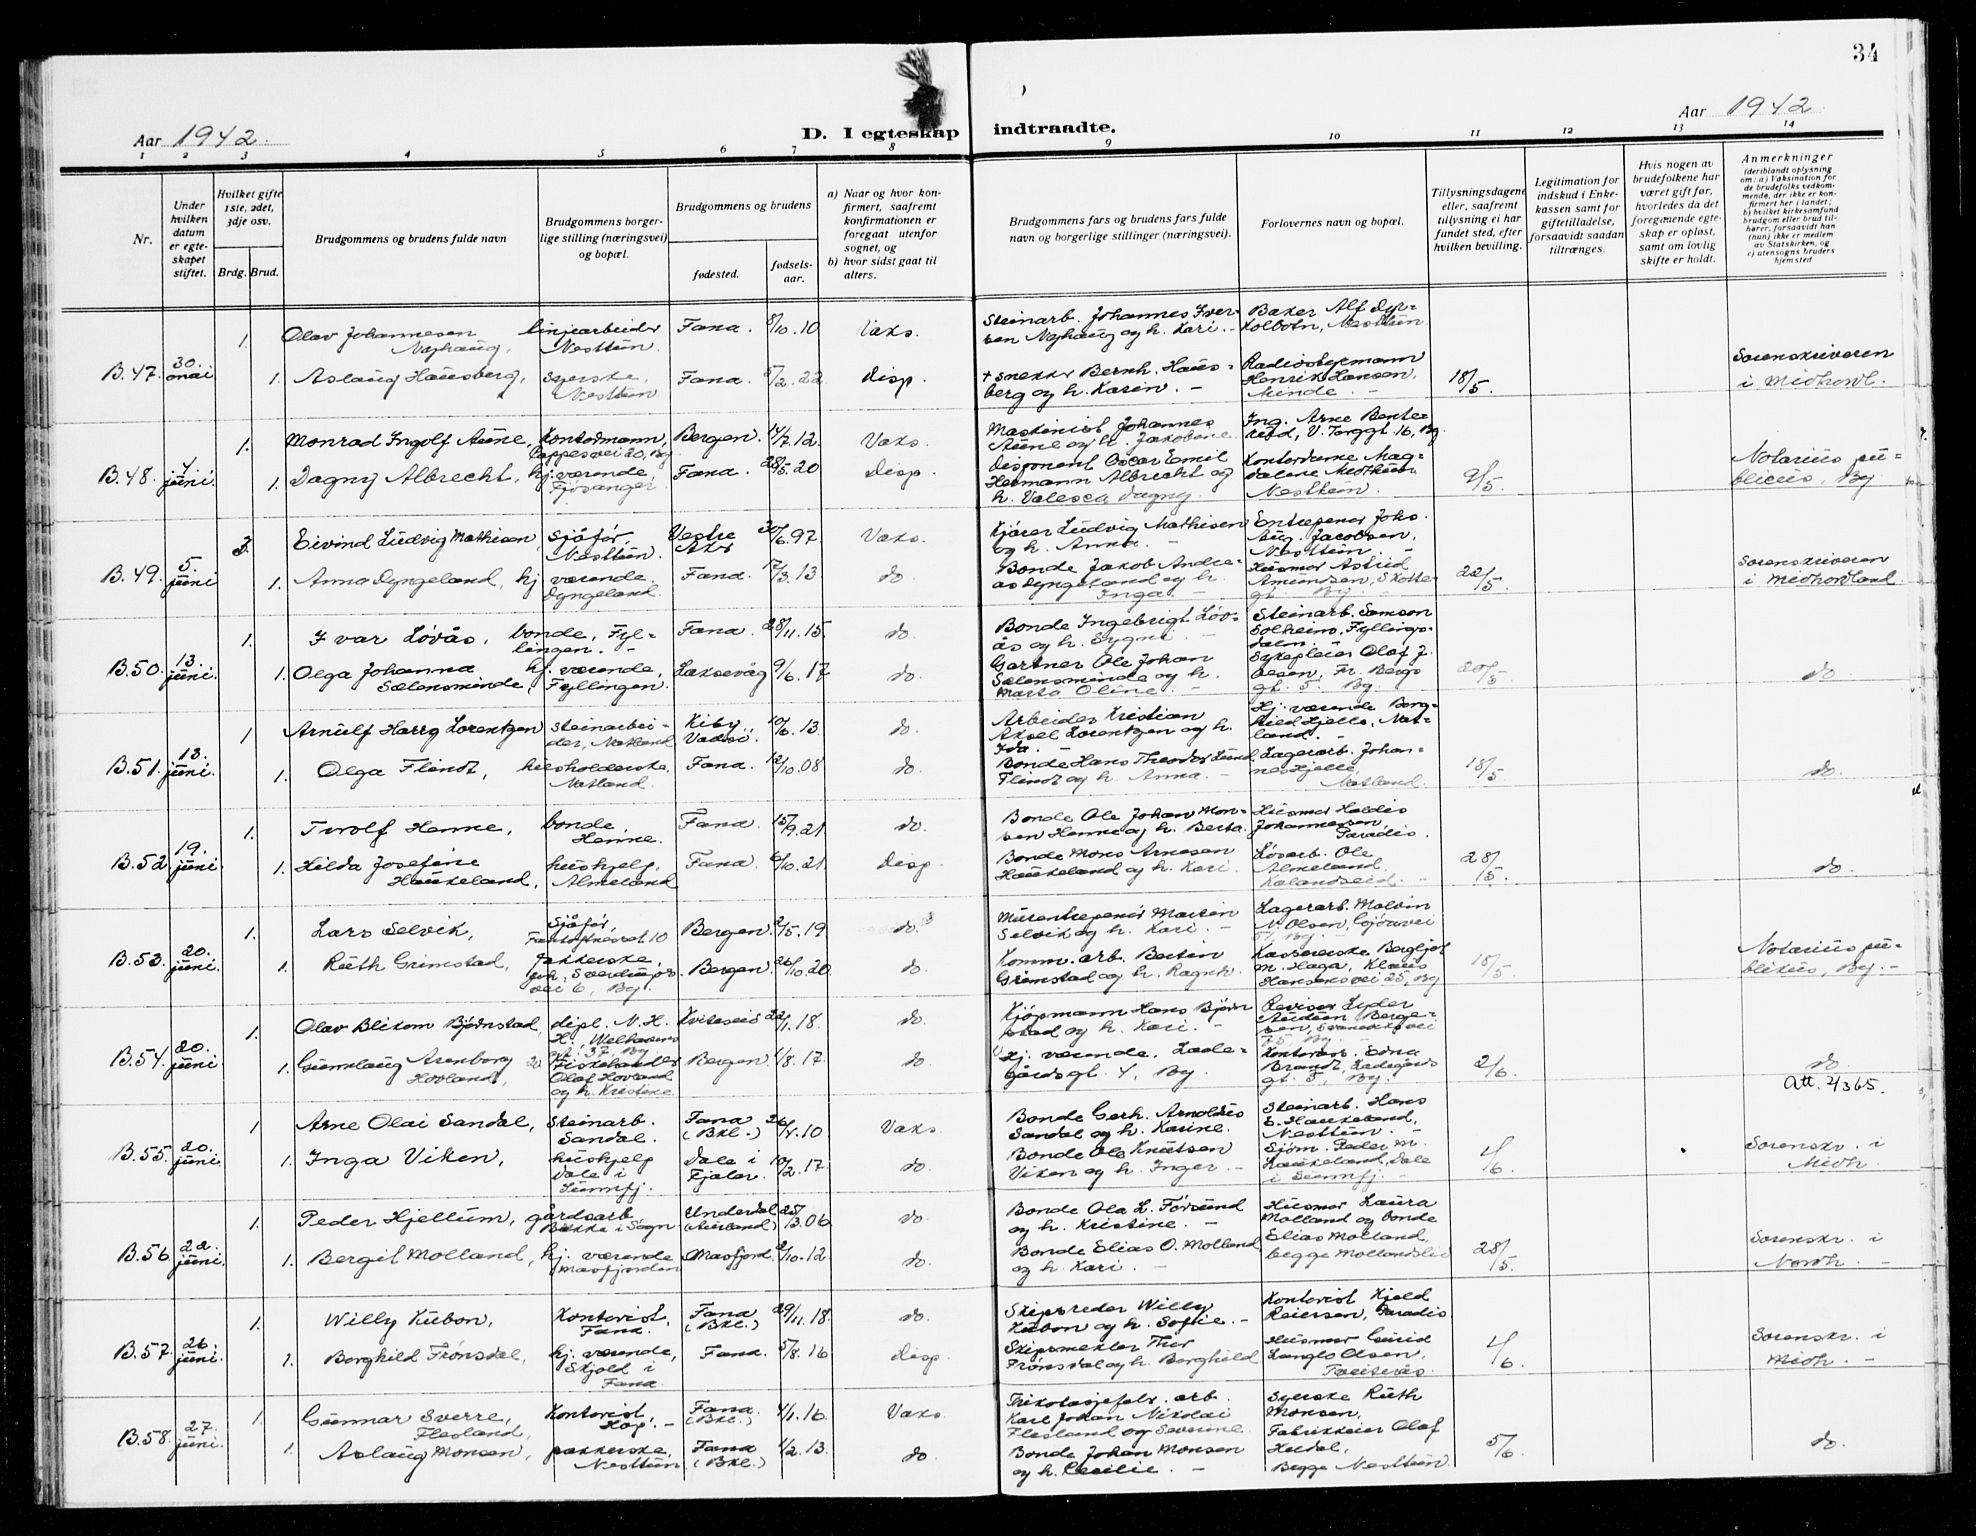 34
Aar 1942.
D. I egteskap indtraadte.
Aar 1942.
1 2 3 4 5 6 7 8 9 10 11 12 13 14
Nr.
Under hvilken datum er egteskapet stiftet.
Hvilket gifte 1ste, 2det, 3dje osv.
Brdg. Brud.
Brudgommens og brudens fulde navn
Brudgommens borgerlige stilling (næringsvei) og bopæl.
Brudgommens og brudens
fødested.
fødselsaar.
a) Naar og hvor konfirmert, saafremt konfirmationen er foregaat utenfor sognet, og
b) hvor sidst gaat til alters.
Brudgommens fars og brudens fars fulde navn og borgerlige stillinger (næringsvei).
Forlovernes navn og bopæl.
Tillysningsdagene eller, saafremt tillysning ei har fundet sted, efter hvilken bevilling.
Legitimation for indskud i Enkekassen samt for giftetilladelse, forsaavidt saadan tiltrænges.
Hvis nogen av brudefolkene har været gift før, hvorledes da det foregaaende egteskap er opløst, samt om lovlig skifte er holdt.
Anmerkninger (deriblandt oplysning om: a) Vaksination for de brudefolks vedkommende, der ikke er konfirmert her i landet; b) hvilket kirkesamfund brudgom eller brud tilhører, forsaavidt han (hun) ikke er medlem av Statskirken, og c) utensogns bruders hjemsted
B.47. 30. mai
1. Olav Johannesen Nøphaug, linjearbeider Nesttun. Fana. 8/10.10 Vaks. Steinarb. Johannes Iversen Nøphaug og h. Kari. - Baker Alf Dyrkolbotn, Nesttun.
1. Aslaug Hausberg, syerske, Nesttun. Fana. 5/2.22 Disp. + snekker Bernh. Hausberg og h. Karin. - Henrik Hansen, Minde. - 18/5. Sorenskriveren i Midhordl.
B.48. 4. juni
1. Monrad Ingolf Aune, Kontormann, 20, By. Bergen. 14/7.12. Vaks. Maskinist Johannes Aune og h. Jakobine Ing. Arne V. Torggt. 16, By
1. Dagny Albrecht, hj. værende Fjøsanger. Fana. 28/5.20 Disp. Disponent Oscar Emil Hermann Albrecht og h. Valesca Dagny. Kontordame Magdalene Nesttun. 9/5. Notarius publicus, By
B.49. 5. juni
3. Eivind Ludvig Mathisen, sjåfør, Nesttun. Vestre Aker 30/6.97 Vaks. Kjører Ludvig Mathisen og h. Anna. - Entreprenør Johs. Aug. Jacobsen, Nesttun. -
1. Anna Dyngeland, hj værende. Dyngeland. Fana. 17/3.13 do. Bonde Jakob Andreas Dyngeland og h. Inga - Husmor Astrid Amundsen, Skottegt. By. 22/5. Sorenskriveren i Midhordland
B.50. 13. juni
1. Ivar Løvås, bonde, Fyllingen. - Fana. 28/11.15. do. Bonde Ingebrigt Løvås og h. Sygni - Steinarb. Samson Solheim, Fyllingsdalen.
1. Olga Johanna Sælensminde, hj. værende, Fyllingen. Laksevåg 9/6.17. do. Gartner Ole Johan Sælensminde og h. Marta Oline. - Sykepleier Olaf J. Olsen, Fr. Bergs gt. 5. By. 20/5. do
B.51. 13. juni.
1 Arnulf Harry Lorentzen steinarbeider, Natland Kiby Vadsø. 10/6.13 do. Arbeider Kristian Aksel Lorentzen og h. Ida. - Hj. værende Borghild Hjelle, Natland. -
1. Olga Flindt, husholderske, Natland. Fana. 12/10.08 do. Bonde Hans Theodor Lund Flindt og h. Anna. - Lagerarb. Johannes Hjelle, Natland. 18/5. do.
B.52 19. juni
1. Torolf Henne, bonde Henne. Fana. 15/9.21. do. Bonde Ole Johan Monsen Henne og h. Berta. Husmor Haldis Johannessen, Paradis.
1. Hilda Josefine Haukeland, hushjelp, Almeland Fana. 6/10.21. Disp. Bonde Mons Arnesen Haukeland og h. Kari. Løsarb. Ole Almeland. Kalandseid. 28/5. do.
B.53. 20. juni
1. Lars Selvik, Sjåfør, 10 Bergen. 2/5.19. do. Murentreprenør Martin Selvik og h. Kari. - Lagerarb. Malvin N. Olsen, By.
1. Ruth Grimstad, Joh. Sverdrups vei 6, By. Bergen. 26/10.20. do. Komm. arb. Bertin Grimstad og h. Ragna. Kassererske Bergljot M. Haga, Klaus Hansens vei 25, By 18/5. Notarius publikus, By. -
B.54. 20. juni
1. Olav Blikom Bjørnstad, dipl. N.H.H., Welhavens gt. 37, By Kviteseid 22/1.18. do. Kjøpmann Hans Bjørnstad og h. Kari. - Revisor Lyder Audun Bergesen, 75, By. -
1. Gunnlaug Arenborg Hovland, Fiskehandler Olaf Hovland og h. Kristine. Bergen. 4/8.17. do. hj. værende. Ladegårdsgt. 4, By. Kontorass. Edna Brandt, Ladegårdsgt. 5, By. 2/6. do
Att. 2/365.
B.55. 20. juni.
1 Arne Olai Sandal, Steinarb. Sandal. Fana (Bkl.) 26/4.10 Vaks. Bonde Gerh. Arnoldus Sandal og h. Karine. - Steinarb. Hans E. Haukeland, Nesttun. -
1. Inga Viken, hushjelp Dale i Sunnfj. Dale i Fjaler. 10/2.17. do. Bonde Ole Knutsen Viken og h. Inger. - Sjøm. Peder M. Haukeland, Dale i Sunnfj. 4/6. Sorenskr. i Midh.
B.56 22. juni.
1. Peder Hjellum, gårdsarb. Bakke i Sogn Underdal (Aurland) 25/3.06 do. Bonde Ola L. Førsund og h. Kristine. - Husmor Laura Molland og bonde
1. Bergit Molland, hj. værende Masfjorden Masfjord. 2/10.12. do. Bonde Elias O. Molland og h. Kari. - Elias Molland, begge Mollandslid 28/5. Sorenskr. i Nordh. -
B.57. 26. juni.
1. Willy Kubon, Kontorist, Fana. Fana (Bkl.) 29/11.18. do. Skipsreder Willy Kubon og h. Sofie. - Kontorist Kjeld Reiersen, Paradis
1. Borghild Frønsdal, hj. værende, Skjold i Fana. Fana. 5/8.16 Disp. Skipsmekler Thor Frønsdal og h. Borghild Husmor Gurid Langlo Olsen, 4/6. Sorenskr. i Midh. -
B.58. 27. juni.
1. Gunnar Sverre, Flesland, Kontorist Hop. - Fana. (Bkl.) 4/1.16. Vaks. Trikotasjefabr. arb. Karl Johan Nikolai Flesland og Severine. Syerske Ruth Monsen,
1. Aslaug Monsen, pakkerske, Nesttun Fana (Bkl.) 1/2.13. do Bonde Johan Monsen og h. Cecilie. - Fabrikkeier Olaf Begge Nesttun. 5/6. do.